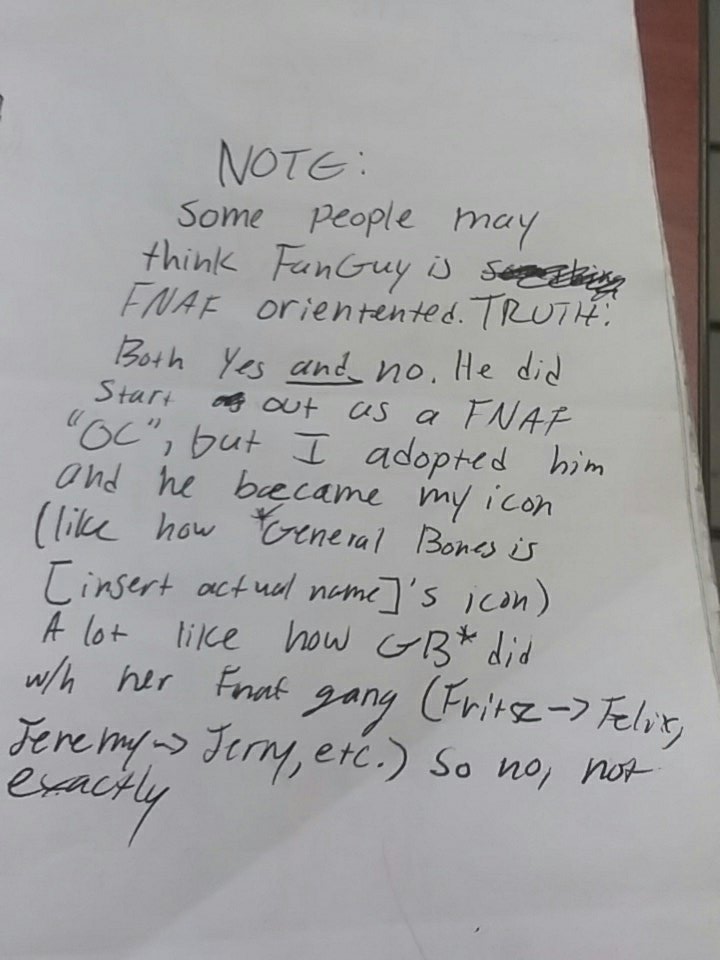 NOTE:
Some people may
think FanGuy is
FNAF orientented. TRUTH:
Both Yes and no. He did
Start out as a FNAF
"OC", but I adopted him
and he became my icon
(like how *General Bones is
[insert actual name]'s icon)
A lot like how GB* did
w/h her Fnaf gang (Fritsz -> Felix,
Jeremy -> Jerry, etc.) So no, not
exactly